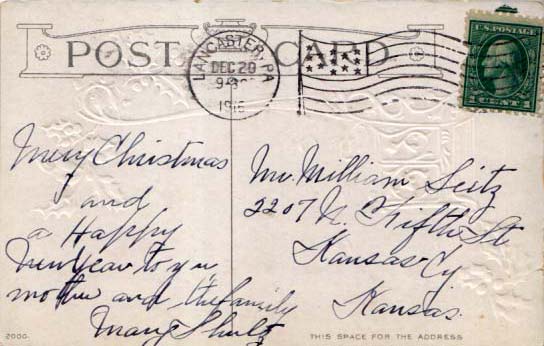 POST CARD
LANCASTER, PA
DEC 20
9-30
191
U.S. POSTAGE
Merry Christmas
and
a Happy
New Year to you
mother and the family
Mary Shultz
Mr. William Seitz
2207 N. Fifth St
Kansas Cy
Kansas.
2000.
THIS SPACE FOR THE ADDRESS